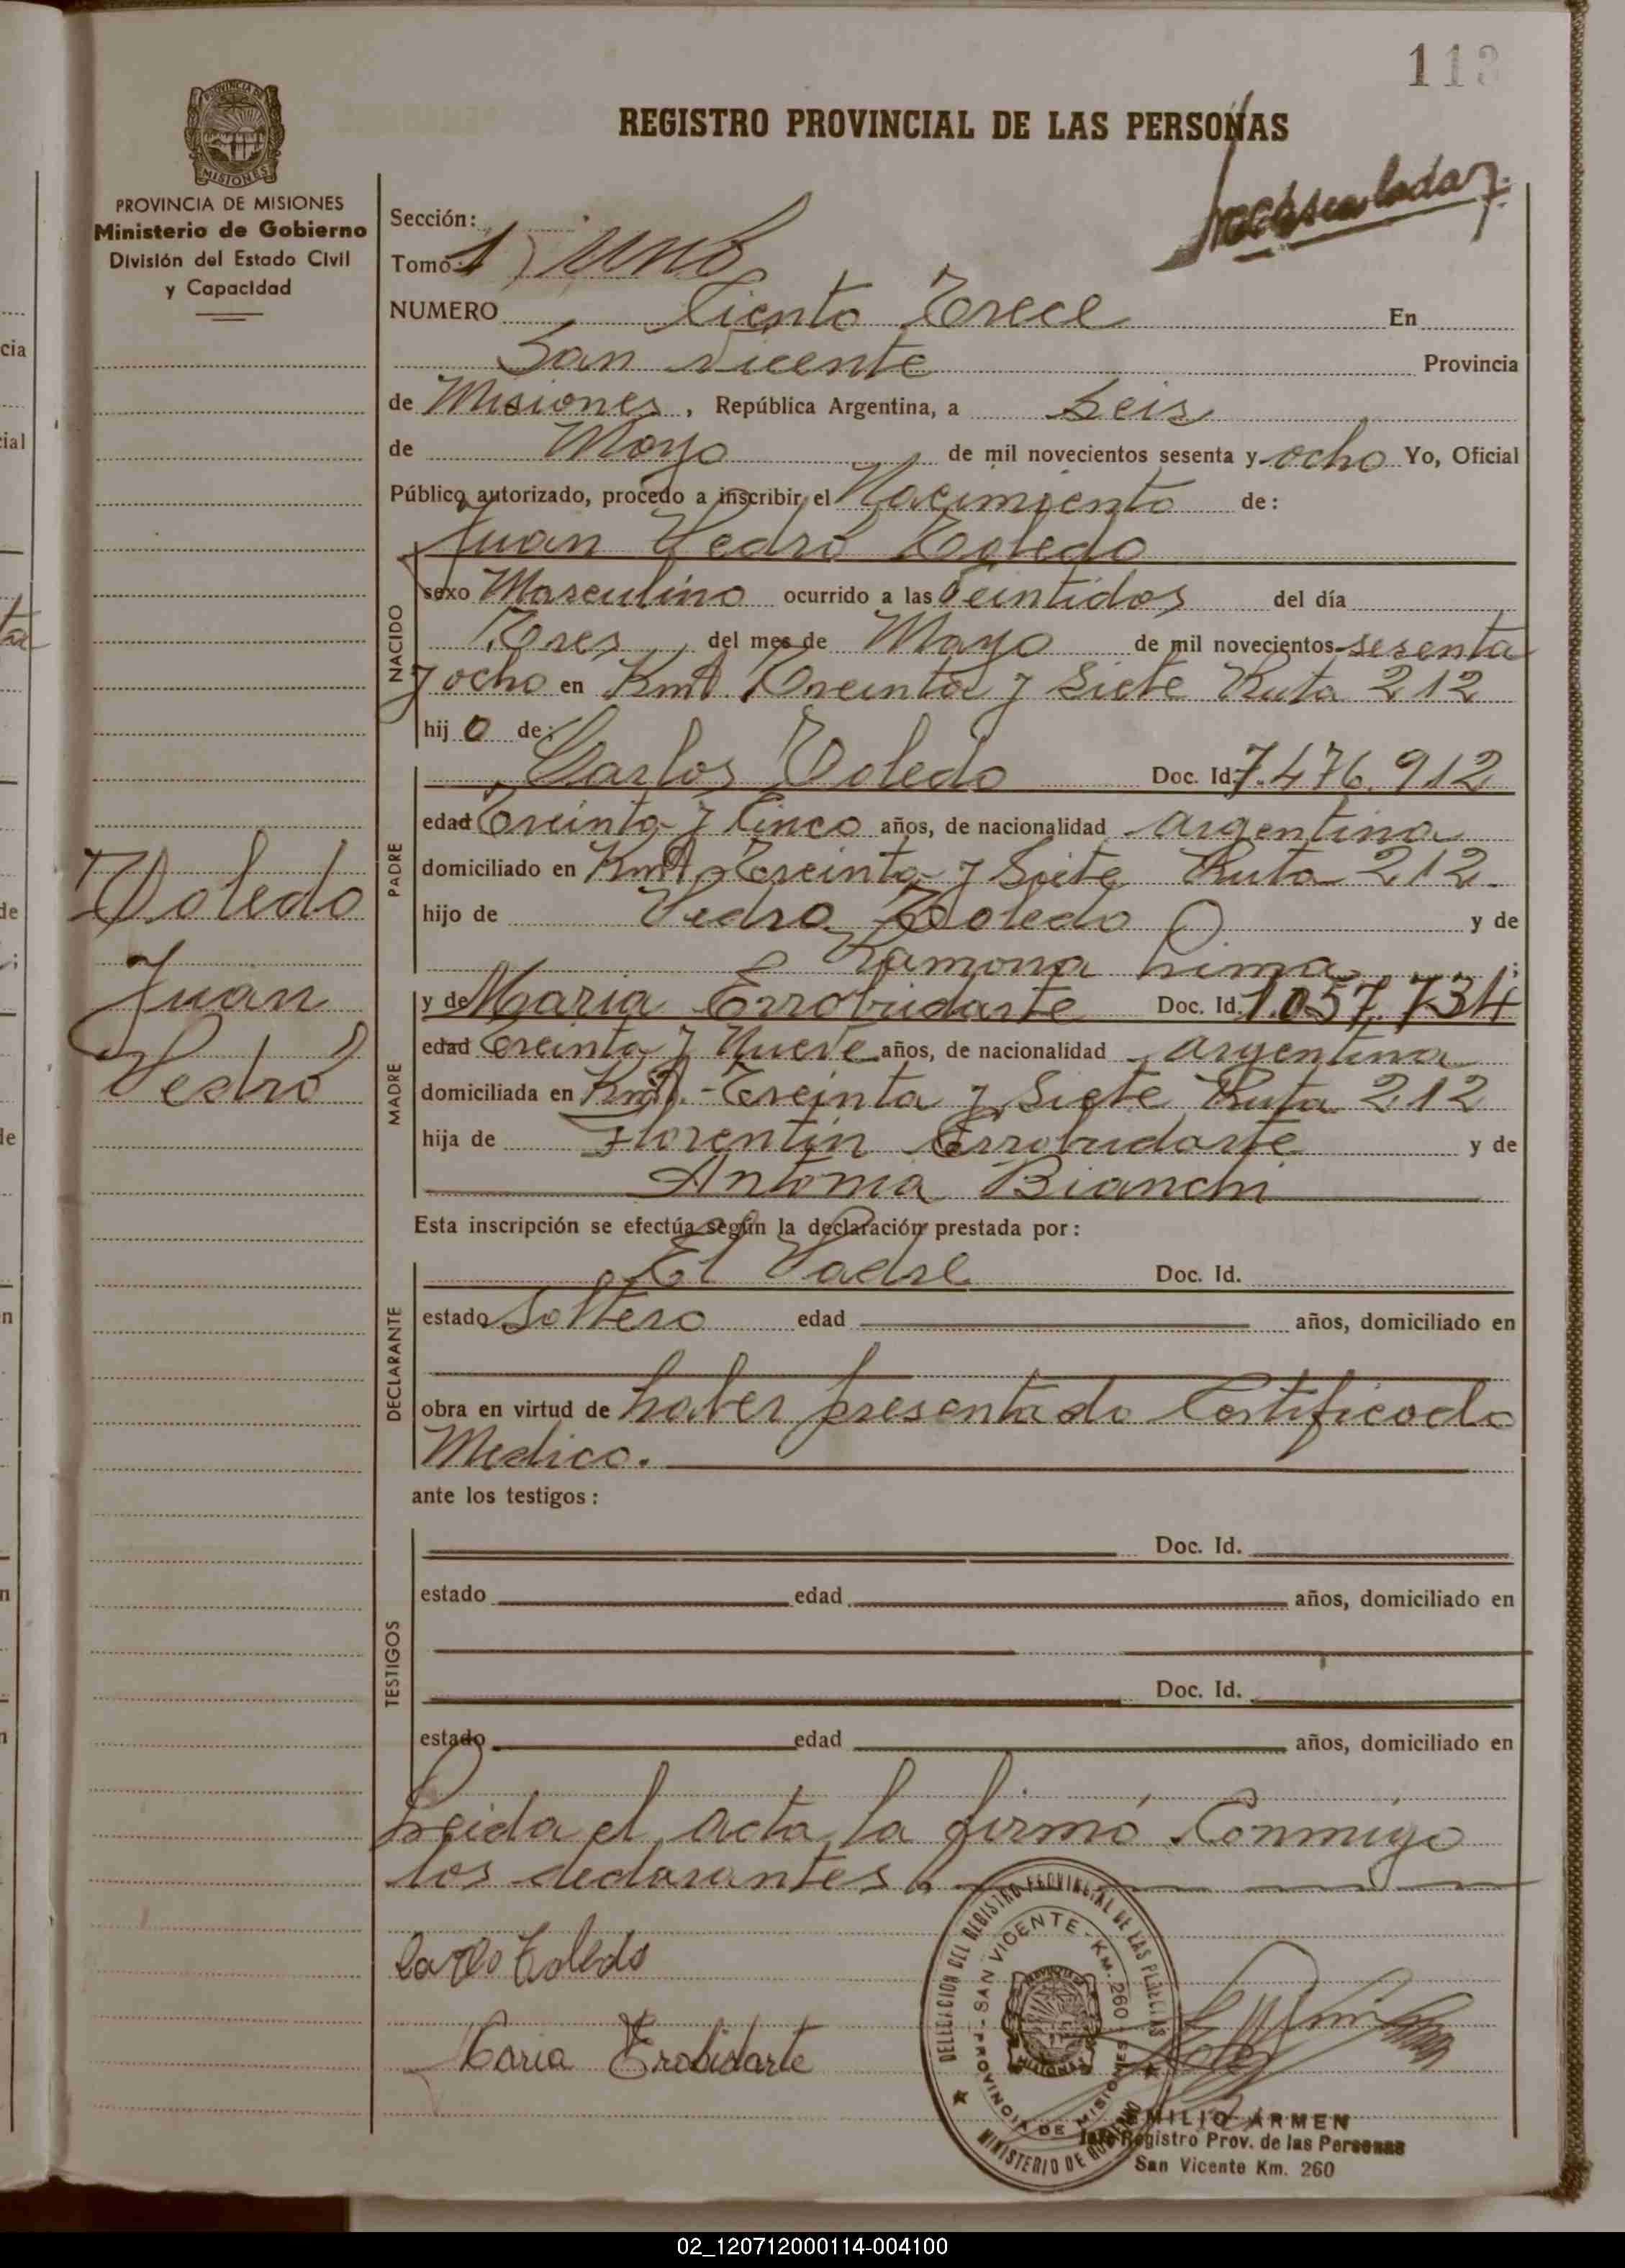 113
REGISTRO PROVINCIAL DE LAS PERSONAS
PROVINCIA DE MISIONES
Ministerio de Gobierno
División del Estado Civil
y Capacidad
Sección:
Tomo: 1 ) uno
NUMERO Ciento Trece En
San Vicente Provincia
de Misiones, República Argentina, a Seis
de Mayo de mil novecientos sesenta y ocho Yo, Oficial
Público autorizado, procedo a inscribir el Nacimiento de:
Juan Pedro Toledo
NACIDO
sexo Masculino ocurrido a las Veintidos del día
Tres del mes de Mayo de mil novecientos sesenta
y ocho en Kmt Treinta y Siete Ruta 212
hijo de:
PADRE
Carlos Toledo Doc. Id. 7.476.912
edad Treinta y Cinco años, de nacionalidad Argentina
domiciliado en Kmt Treinta y Siete Ruta 212
hijo de Pedro Toledo y de
Ramona Lima ;
MADRE
y de Maria Errobidarte Doc. Id. 1.057.734
edad Treinta y Nueve años, de nacionalidad Argentina
domiciliada en Kmt. Treinta y Siete Ruta 212
hija de Florentin Errobidarte y de
Antonia Bianchi
Toledo
Juan
Pedro
Esta inscripción se efectúa según la declaración prestada por:
DECLARANTE
El Padre Doc. Id.
estado Soltero edad años, domiciliado en
obra en virtud de haber presentado Certificado
Medico.
ante los testigos:
TESTIGOS
Doc. Id.
estado edad años, domiciliado en
Doc. Id.
estado edad años, domiciliado en
Leida el acta la firmó Conmigo
los declarantes
Carlo Toledo
Maria Erobidarte
DELEGACION DEL REGISTRO PROVINCIAL DE LAS PERSONAS
SAN VICENTE - KM. 260
PROVINCIA DE MISIONES
MINISTERIO DE GOBIERNO
EMILIO ARMEN
Jefe Registro Prov. de las Personas
San Vicente Km. 260
02_120712000114-004100